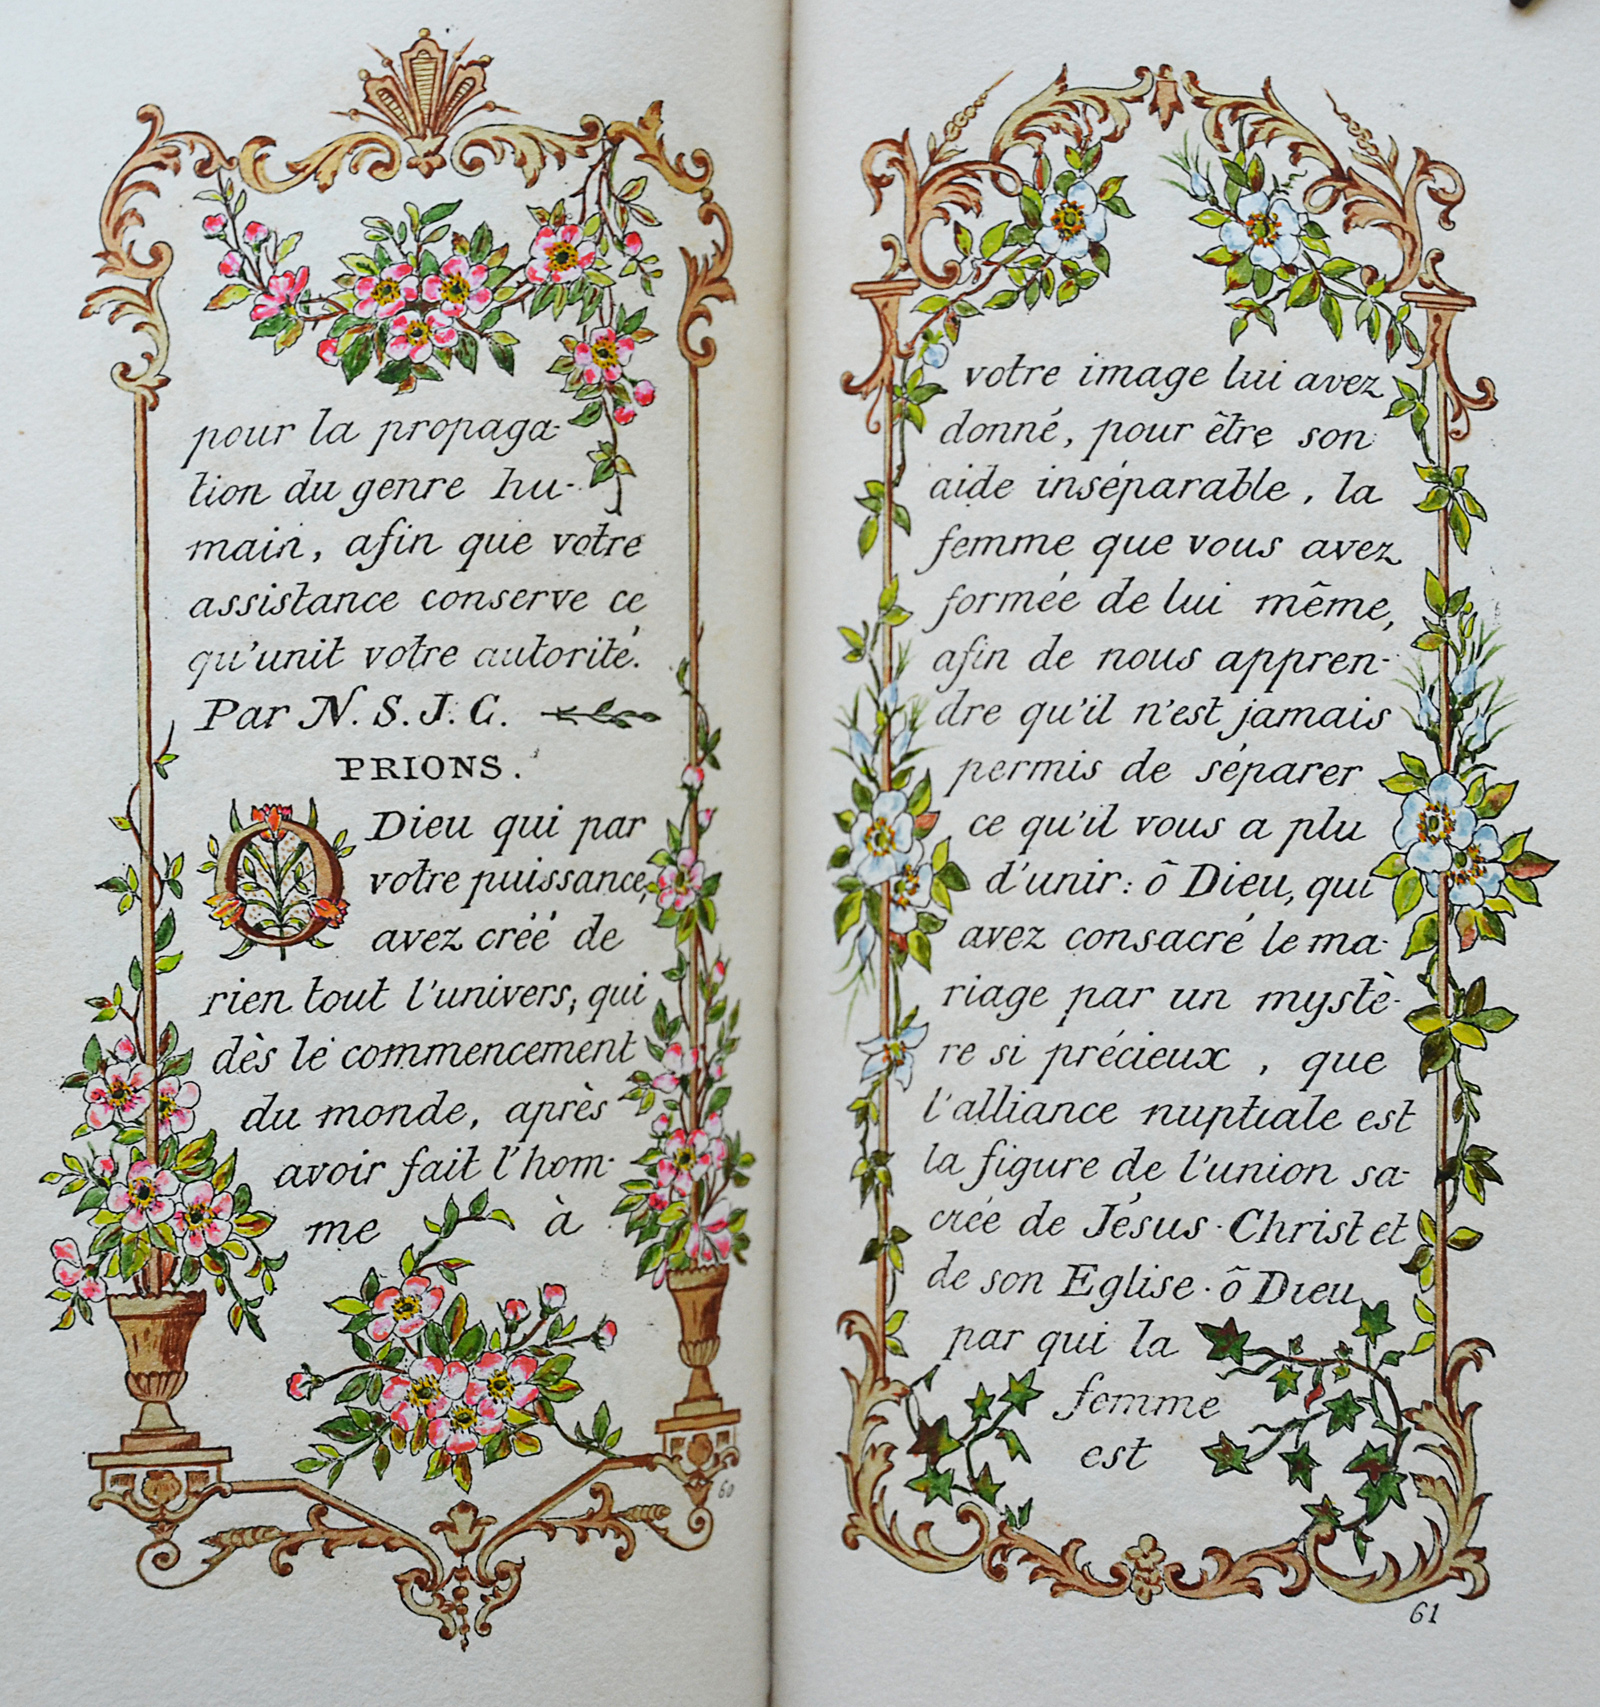 pour la propaga-
tion du genre hu-
main, afin que votre
assistance conserve ce
qu'unit votre autorité.
Par N. S. J. C.
PRIONS.
O Dieu qui par
votre puissance,
avez créé de
rien tout l'univers; qui
dès le commencement
du monde, après
avoir fait l'hom-
me à
60
votre image lui avez
donné, pour être son
aide inséparable, la
femme que vous avez
formée de lui même,
afin de nous appren-
dre qu'il n'est jamais
permis de séparer
ce qu'il vous a plu
d'unir: ô Dieu, qui
avez consacré le ma-
riage par un mystè-
re si précieux, que
l'alliance nuptiale est
la figure de l'union sa-
crée de Jésus-Christ et
de son Eglise. ô Dieu
par qui la
femme
est
61